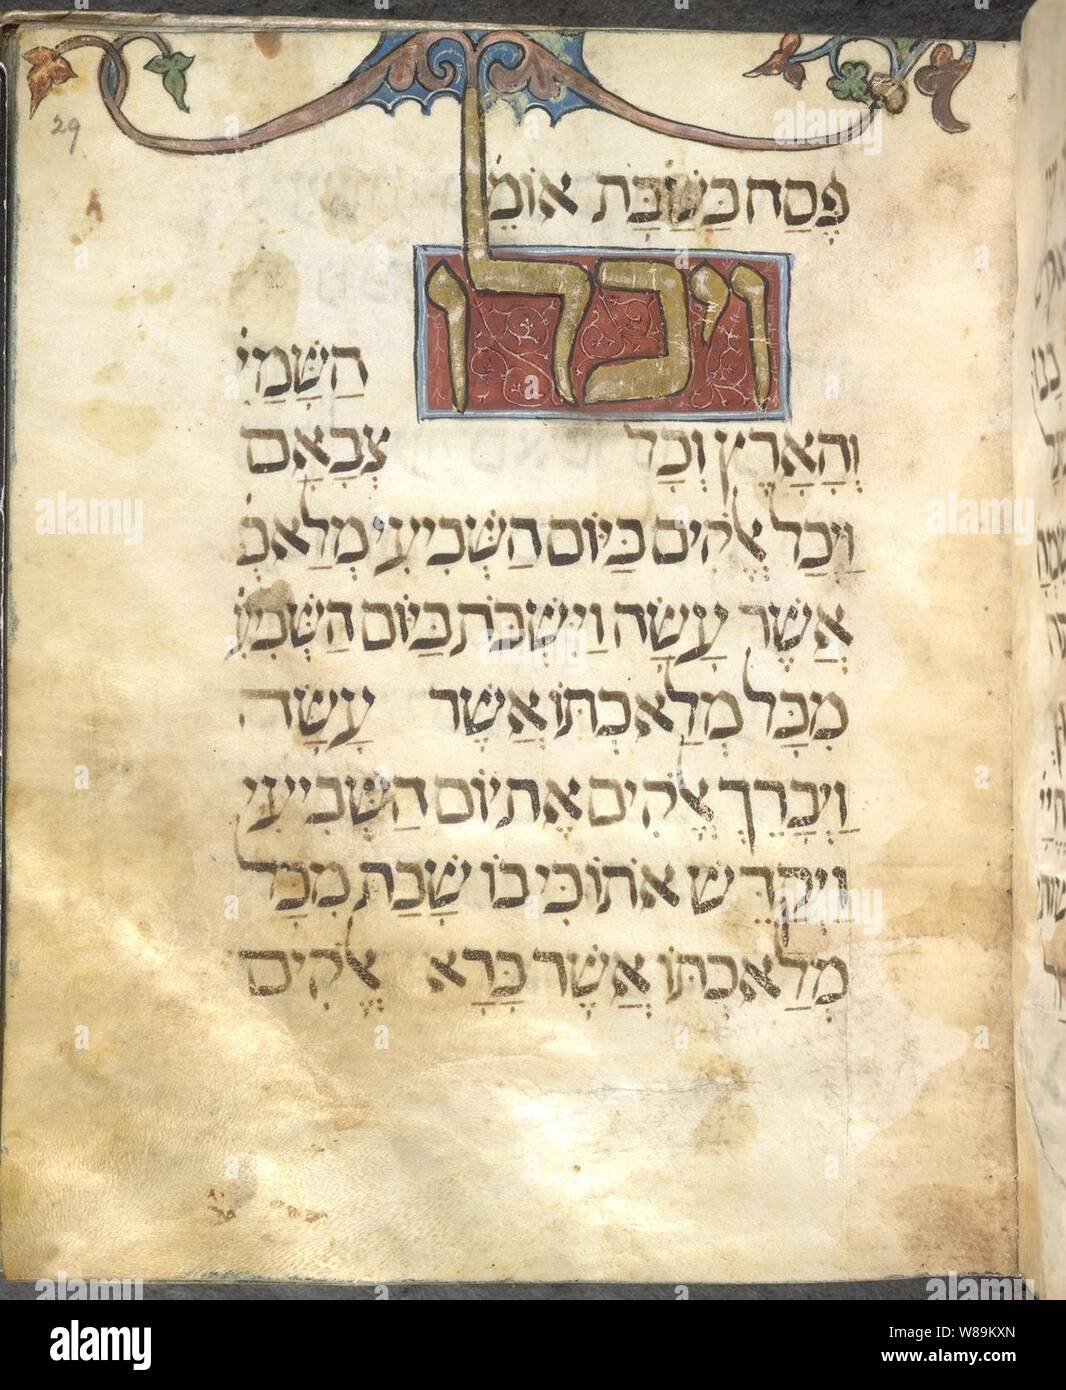 29
פֶּסַח כַּשַׁבָּת אוֹמֵ
ויכלו
הַשָּׁמַיִ
וְהָאָרֶץ וְכָל צְבָאָם
וַיְכַל אֱלֹקִים בַּיּוֹם הַשְּׁבִיעִי מְלַאכְ
אֲשֶׁר עָשָׂה וַיִּשְׁבֹּת בַּיּוֹם הַשְּׁבִיעִ
מִכָּל מְלַאכְתּוֹ אֲשֶׁר עָשָׂה
וַיְבָרֶךְ אֱלֹקִים אֶת יוֹם הַשְּׁבִיעִי
וַיְקַדֵּשׁ אֹתוֹ כִּי בוֹ שָׁבַת מִכָּל
מְלַאכְתּוֹ אֲשֶׁר בָּרָא אֱלֹקִים
alamy
a
alamy
W89KXN
www.alamy.com